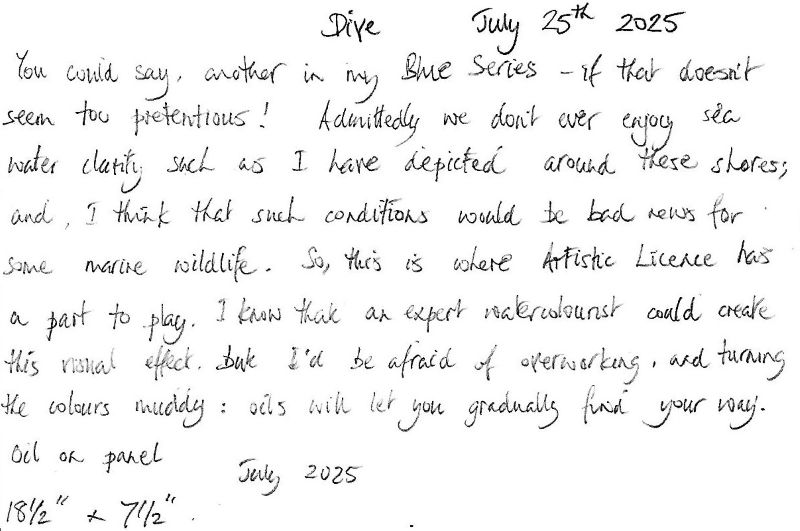 Dive July 25th 2025
You could say, another in my Blue Series – if that doesn't
seem too pretentious! Admittedly we don't ever enjoy sea
water clarity such as I have depicted around these shores;
and, I think that such conditions would be bad news for
some marine wildlife. So, this is where Artistic Licence has
a part to play. I know that an expert watercolourist could create
this visual effect, but I'd be afraid of overworking, and turning
the colours muddy: oils will let you gradually find your way.
Oil on panel
July 2025
18½" x 7½".